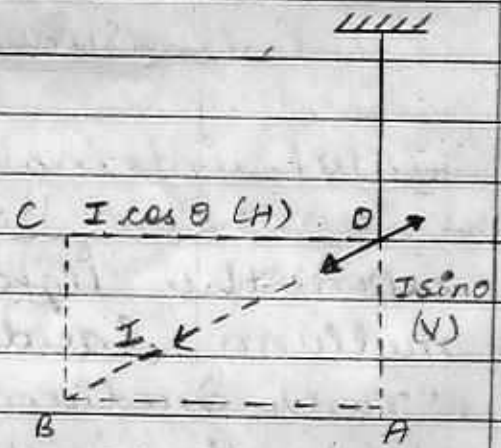 C I cos θ (H) O
I sinθ
(V)
I
B A